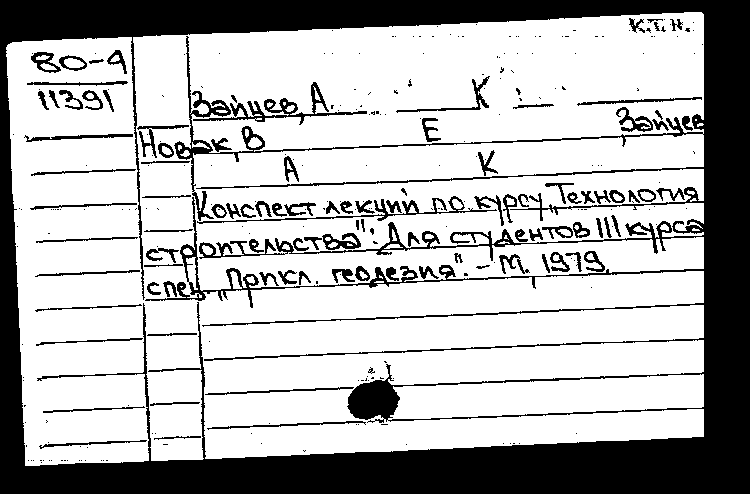 К.Т.Н.
80-4
11391
Зайцев, А. К
Новак, В Е , Зайцев
А К
Конспект лекций по курсу „Технология
строительства": Для студентов III курса
спец. „Прикл. геодезия". - М., 1979.